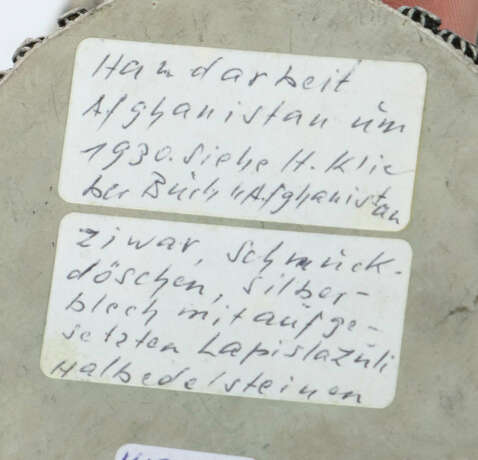 Handarbeit
Afghanistan um
1930. siehe H. Klie
ber Buch "Afghanistan
Ziwar, Schmuck-
döschen, Silber-
blech mit aufge-
setzten Lapislazuli
Halbedelsteinen